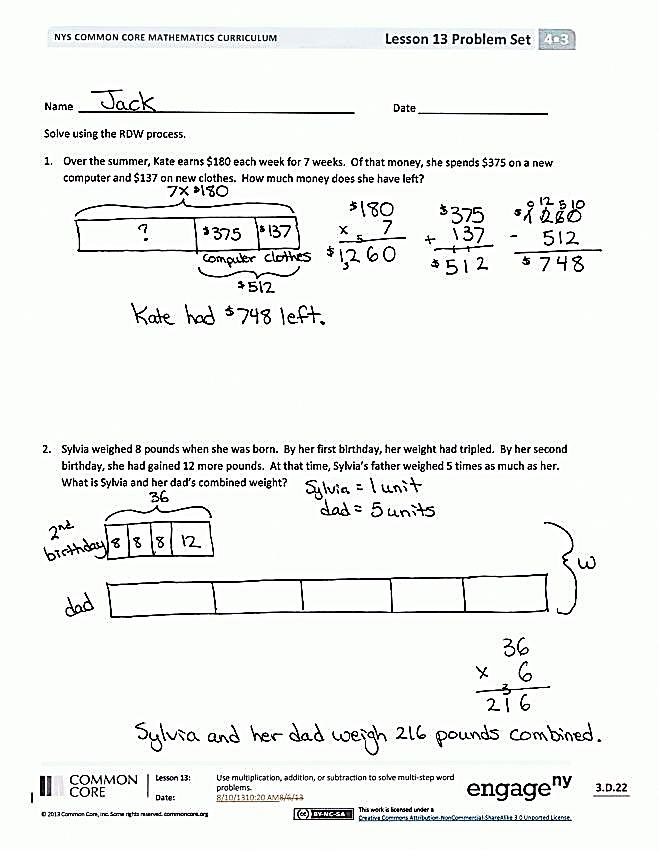 NYS COMMON CORE MATHEMATICS CURRICULUM Lesson 13 Problem Set 4•3
Name Jack Date
Solve using the RDW process.
1. Over the summer, Kate earns $180 each week for 7 weeks. Of that money, she spends $375 on a new
computer and $137 on new clothes. How much money does she have left?
7 x $180
? $375 $137
computer clothes
$512
$180
x 7
5
$1,260
$375
+ 137
1 1
$512
0 12 5 10
$1260
- 512
$748
Kate had $748 left.
2. Sylvia weighed 8 pounds when she was born. By her first birthday, her weight had tripled. By her second
birthday, she had gained 12 more pounds. At that time, Sylvia's father weighed 5 times as much as her.
What is Sylvia and her dad's combined weight?
Sylvia = 1 unit
dad = 5 units
36
2nd
birthday 8 8 8 12
dad
W
36
x 6
3
216
Sylvia and her dad weigh 216 pounds combined.
COMMON
CORE
Lesson 13: Use multiplication, addition, or subtraction to solve multi-step word
problems.
Date: 8/10/1310:20 AM8/6/13
engageny
3.D.22
© 2013 Common Core, Inc. Some rights reserved. commoncore.org
(cc) BY-NC-SA
This work is licensed under a
Creative Commons Attribution-NonCommercial-ShareAlike 3.0 Unported License.